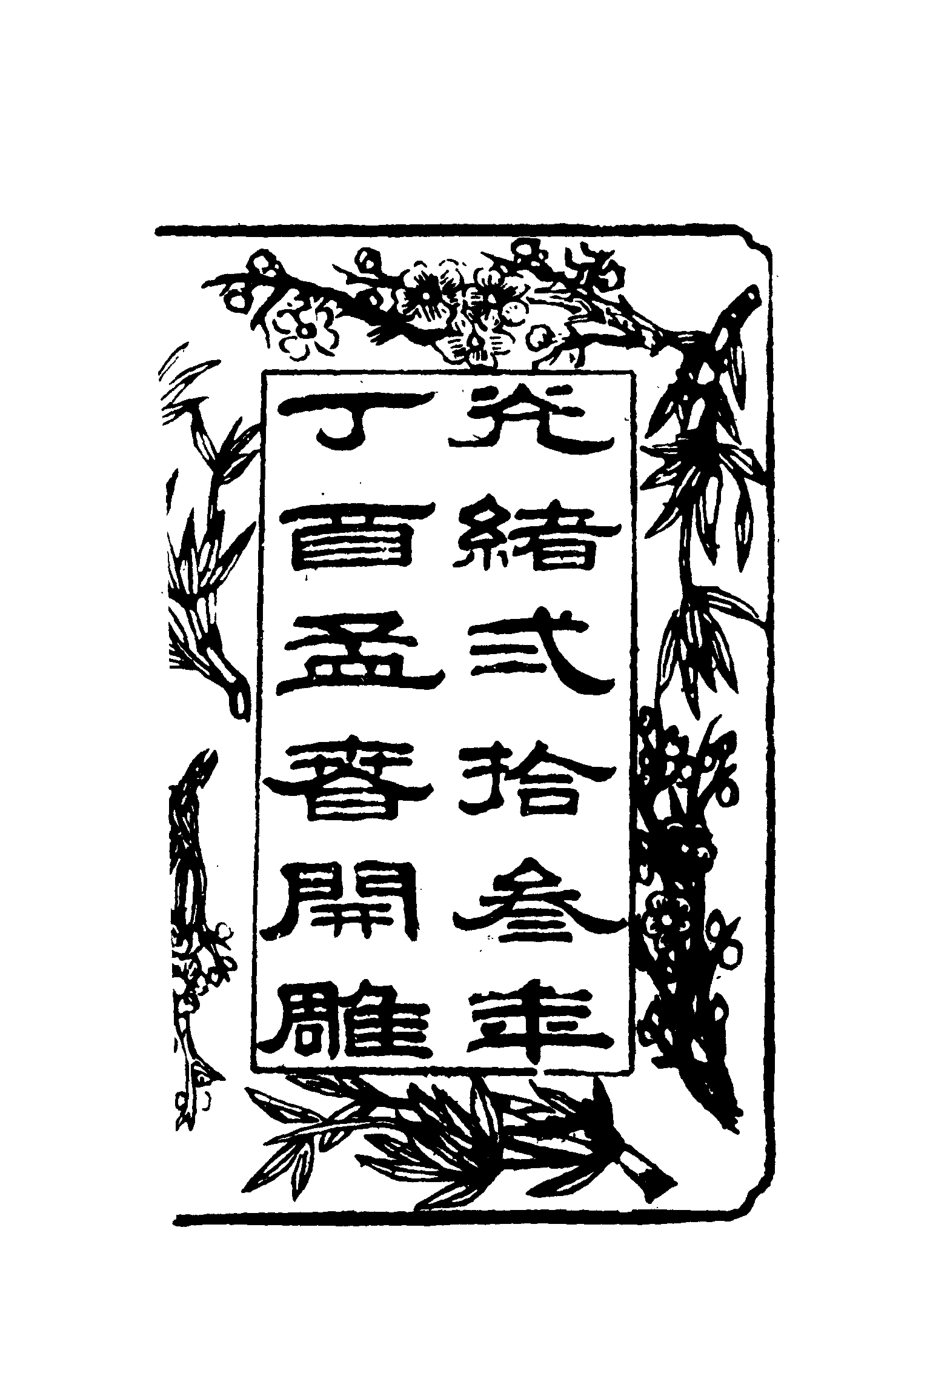 光緒弍拾叁年
丁酉孟春開雕